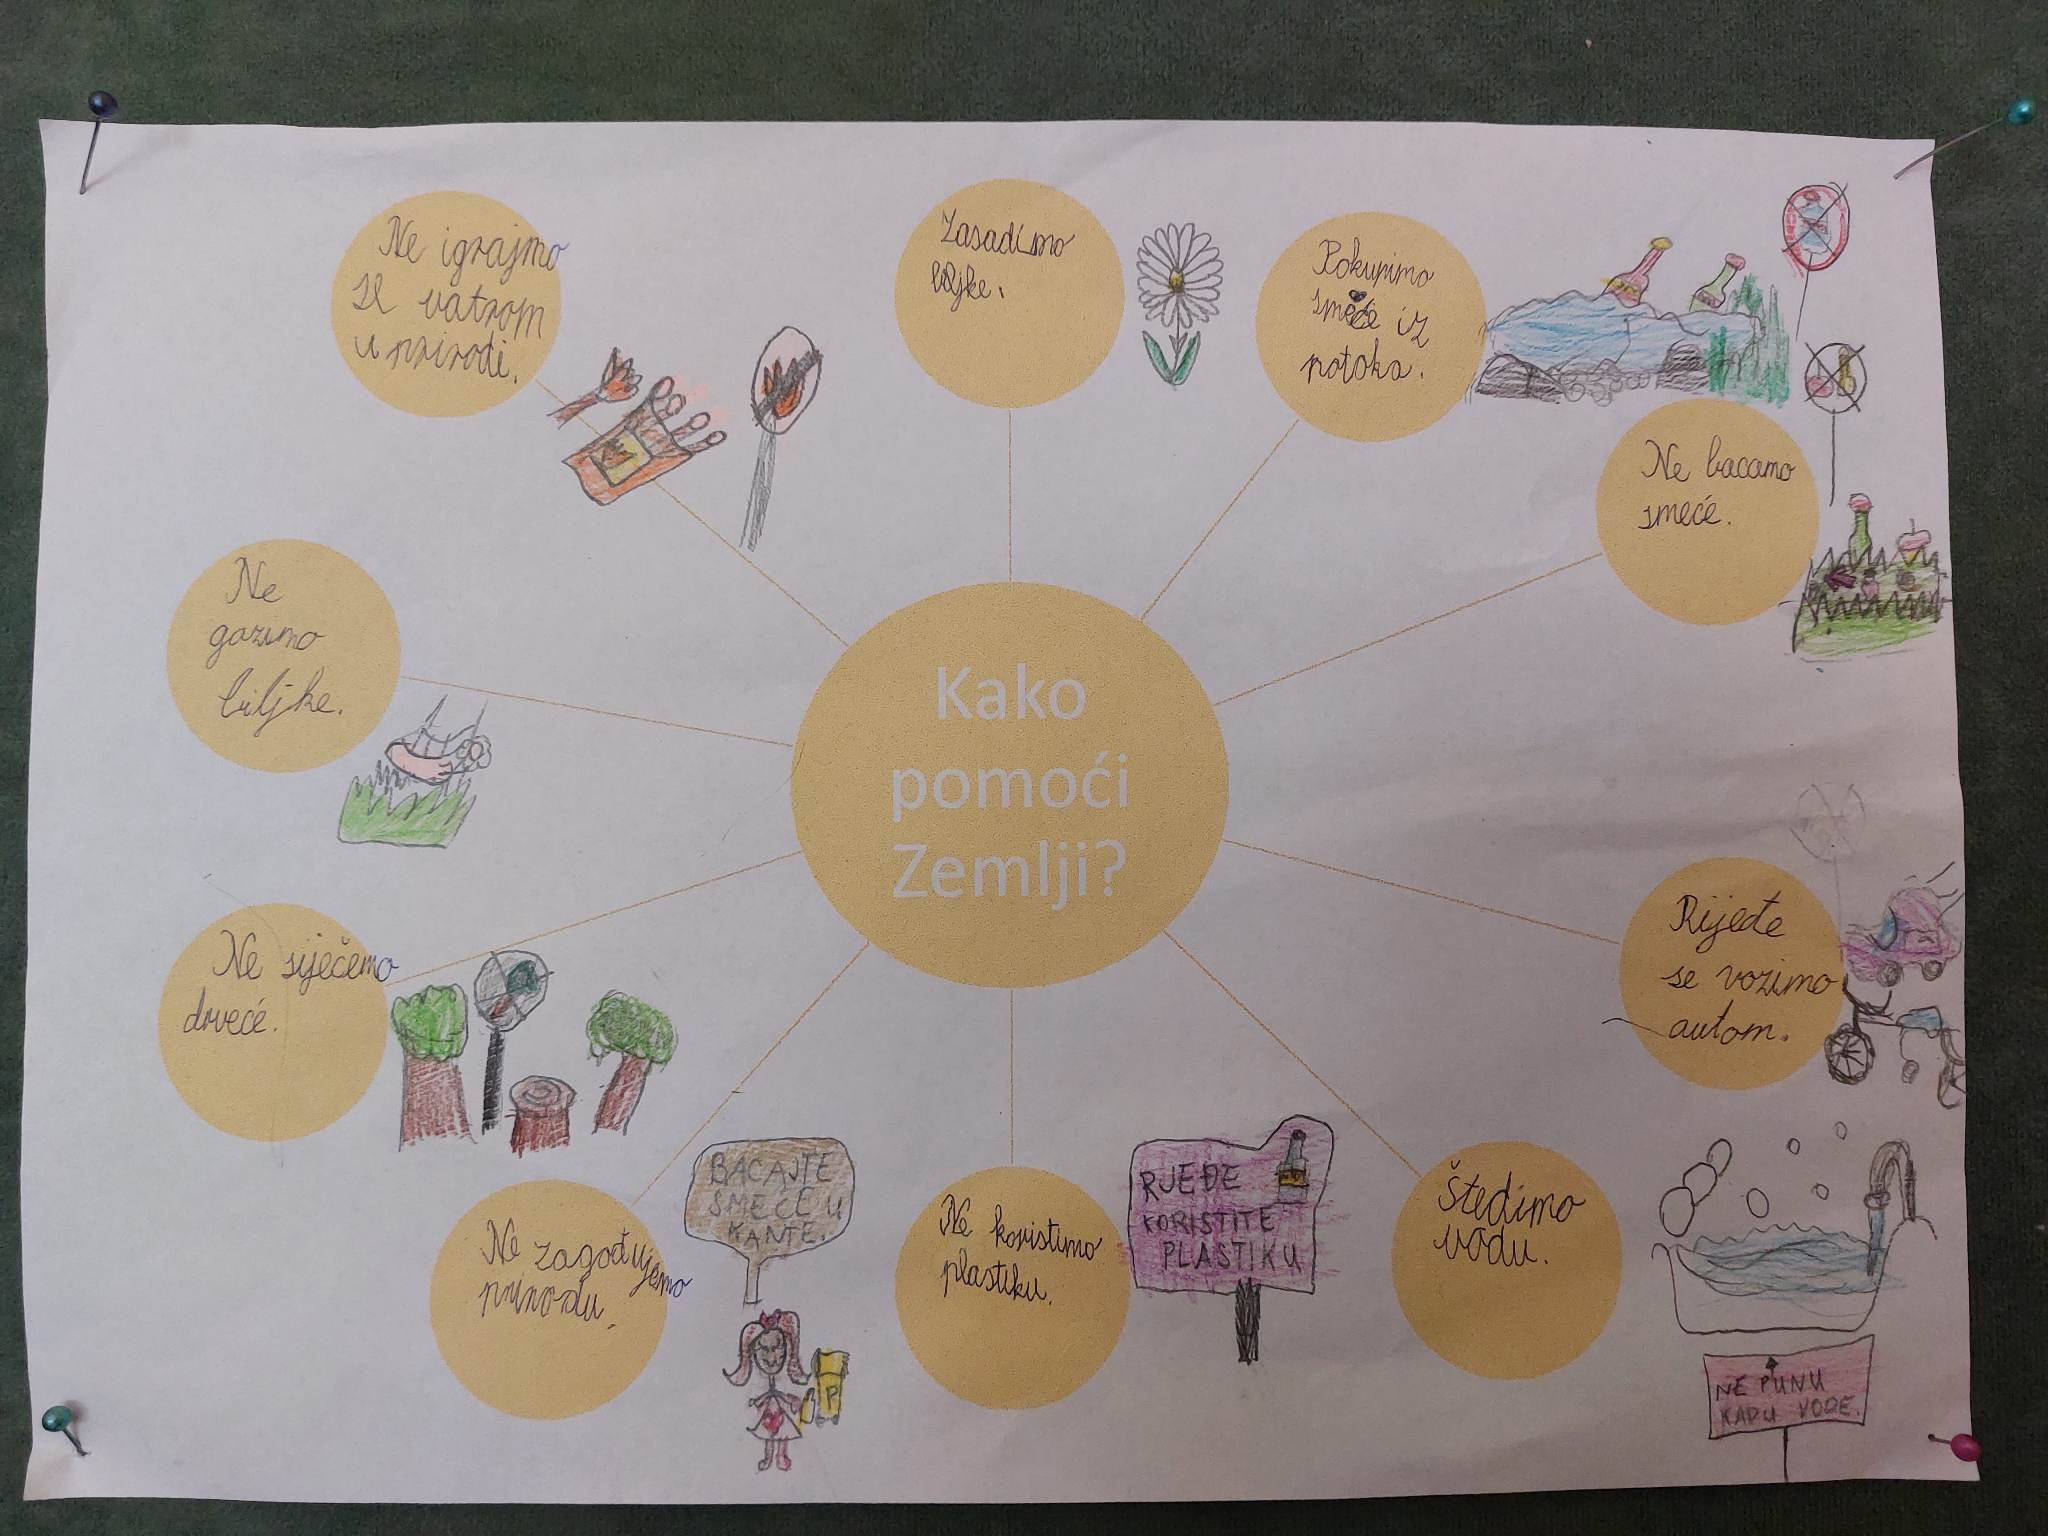 Kako
pomoći
Zemlji?
Ne igrajmo
se vatrom
u prirodi.
Zasadimo
biljke.
Pokupimo
smeće iz
potoka.
Ne bacamo
smeće.
Rijeđe
se vozimo
autom.
Štedimo
vodu.
NE PUNU
KADU VODE.
Ne koristimo
plastiku.
RJEĐE
KORISTITE
PLASTIKU
Ne zagođujemo
prirodu.
BACAJTE
SMEĆE U
KANTE.
P
Ne siječemo
drveće.
Ne
gazimo
biljke.